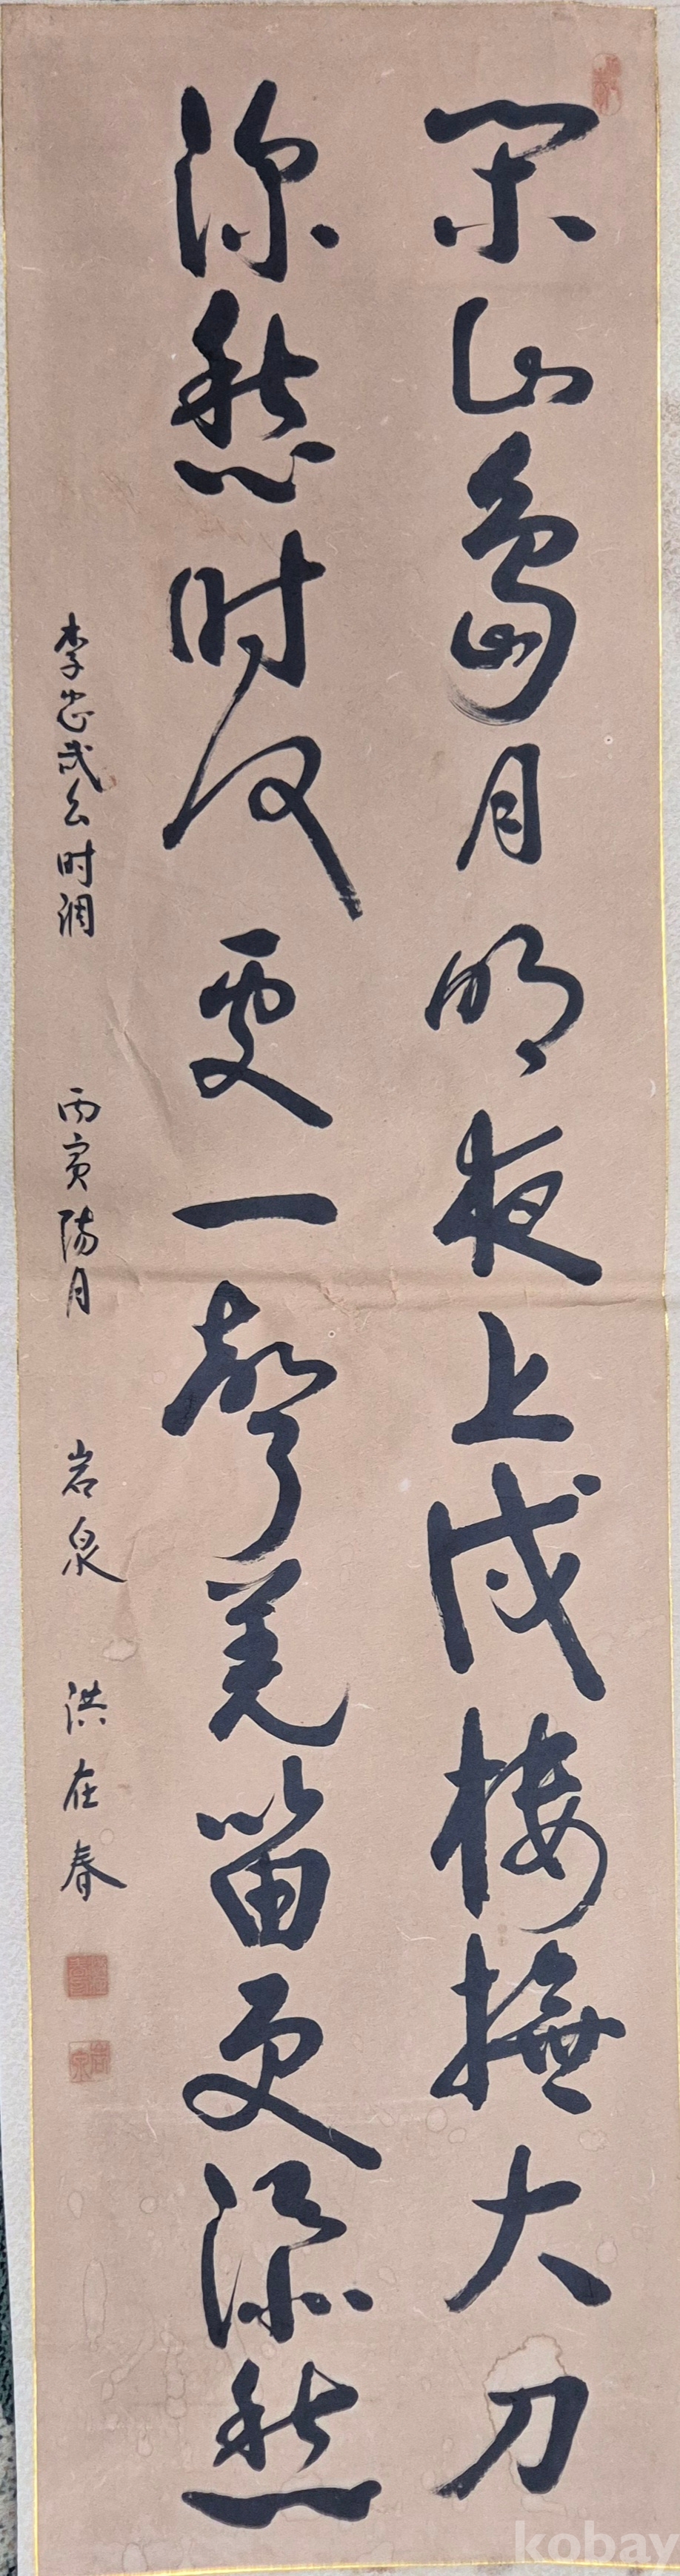 閑山島月明夜上戍樓撫大刀
深愁時何處一聲羌笛更添愁
李忠武公時調 丙寅陽月 岩泉 洪在春
kobay